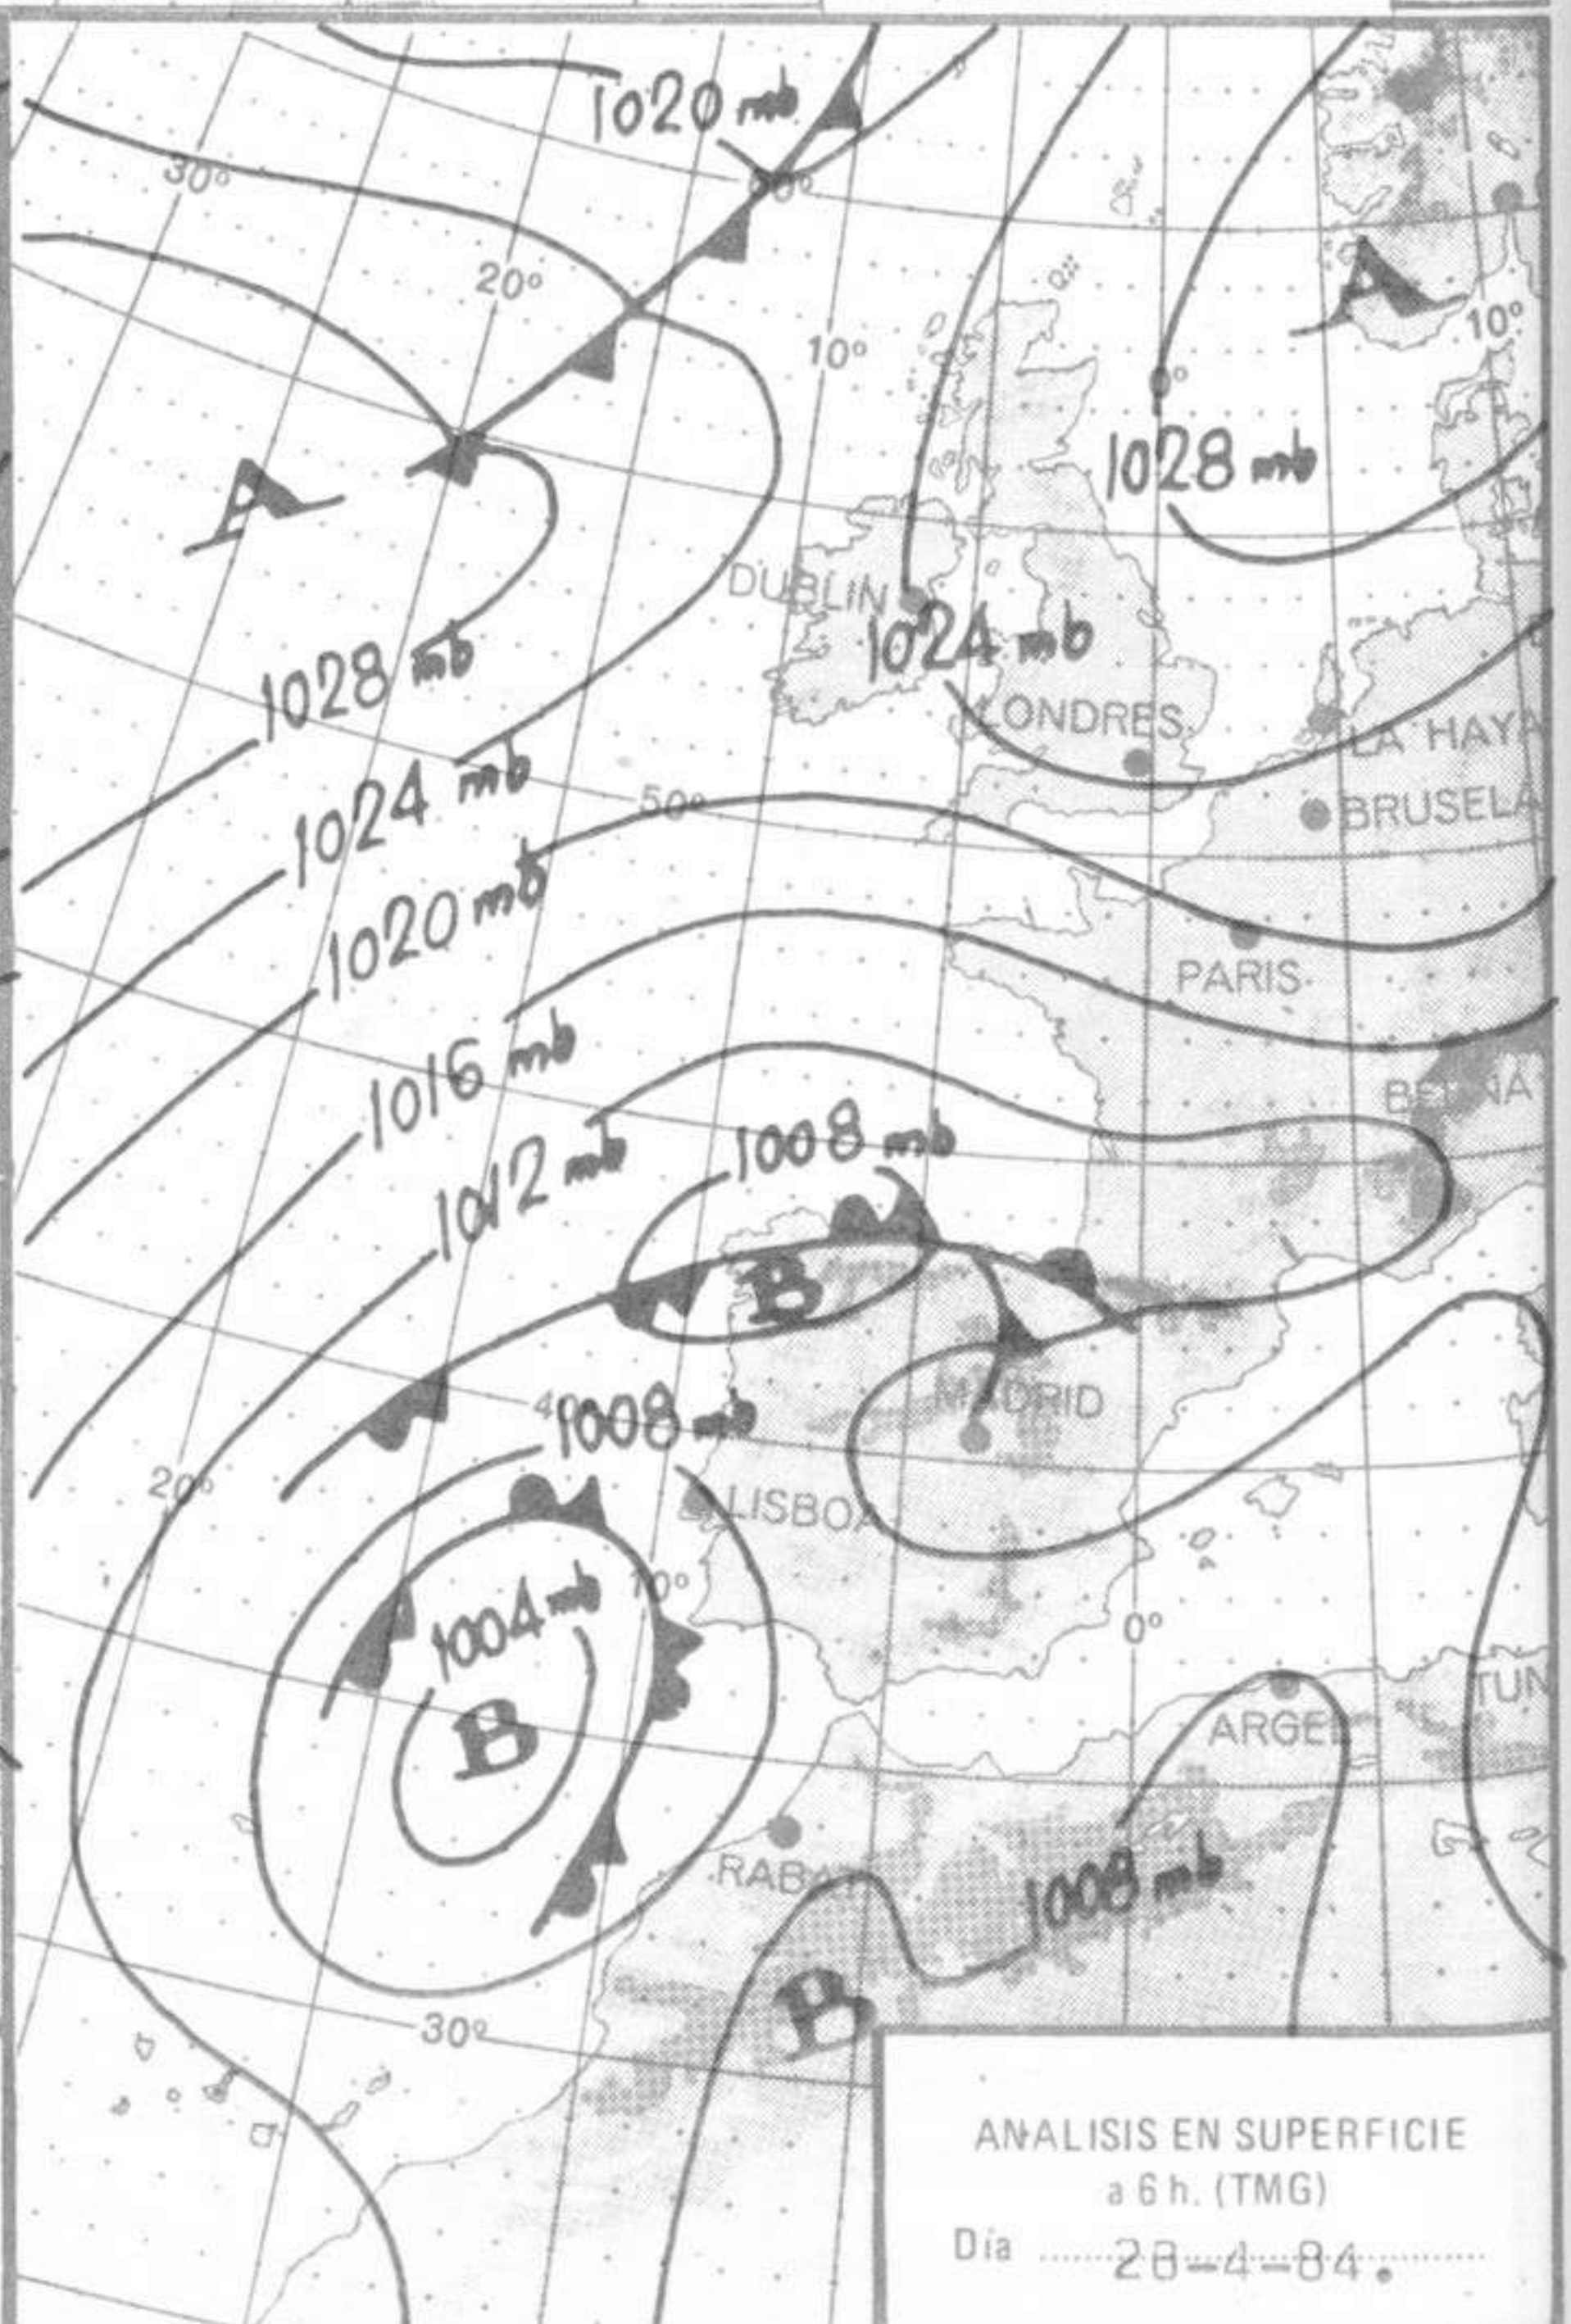 1020 mb
60°
30°
20°
A
10°
10°
0°
1028 mb
A
DUBLIN
1024 mb
1028 mb
LONDRES
LA HAYA
1024 mb
50°
BRUSELA
1020 mb
PARIS
1016 mb
BERNA
1008 mb
1012 mb
B
MADRID
40
1008 mb
20°
LISBOA
1004 mb
10°
0°
B
TUN
ARGEL
RABAT
1008 mb
B
30°
ANALISIS EN SUPERFICIE
a 6 h. (TMG)
Día 28-4-84.